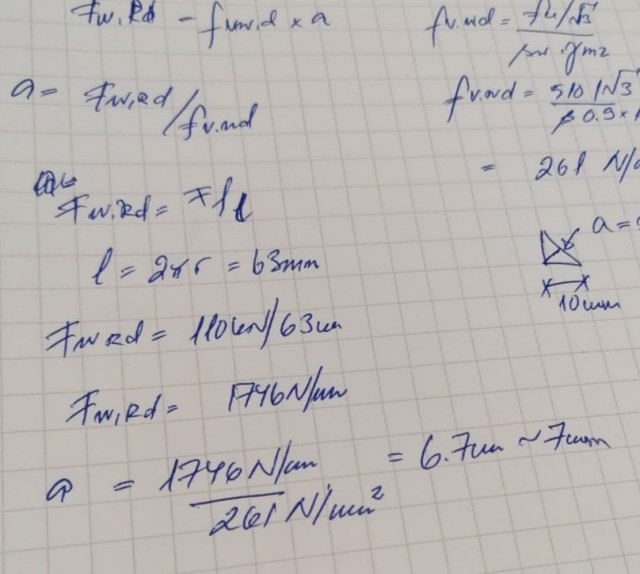 Fw,Rd = fvw.d x a
a = Fw,Rd / fv.wd
Fw.Rd = F/l
l = 2πr = 63mm
Fw Rd = 110kN/63mm
Fw,Rd = 1746N/mm
a = 1746N/mm / 261N/mm² = 6.7mm ~ 7mm
fv.wd = fu/√3 / βw γm2
fv.wd = 510/√3 / 0.9 x
= 261 N/
a =
10mm